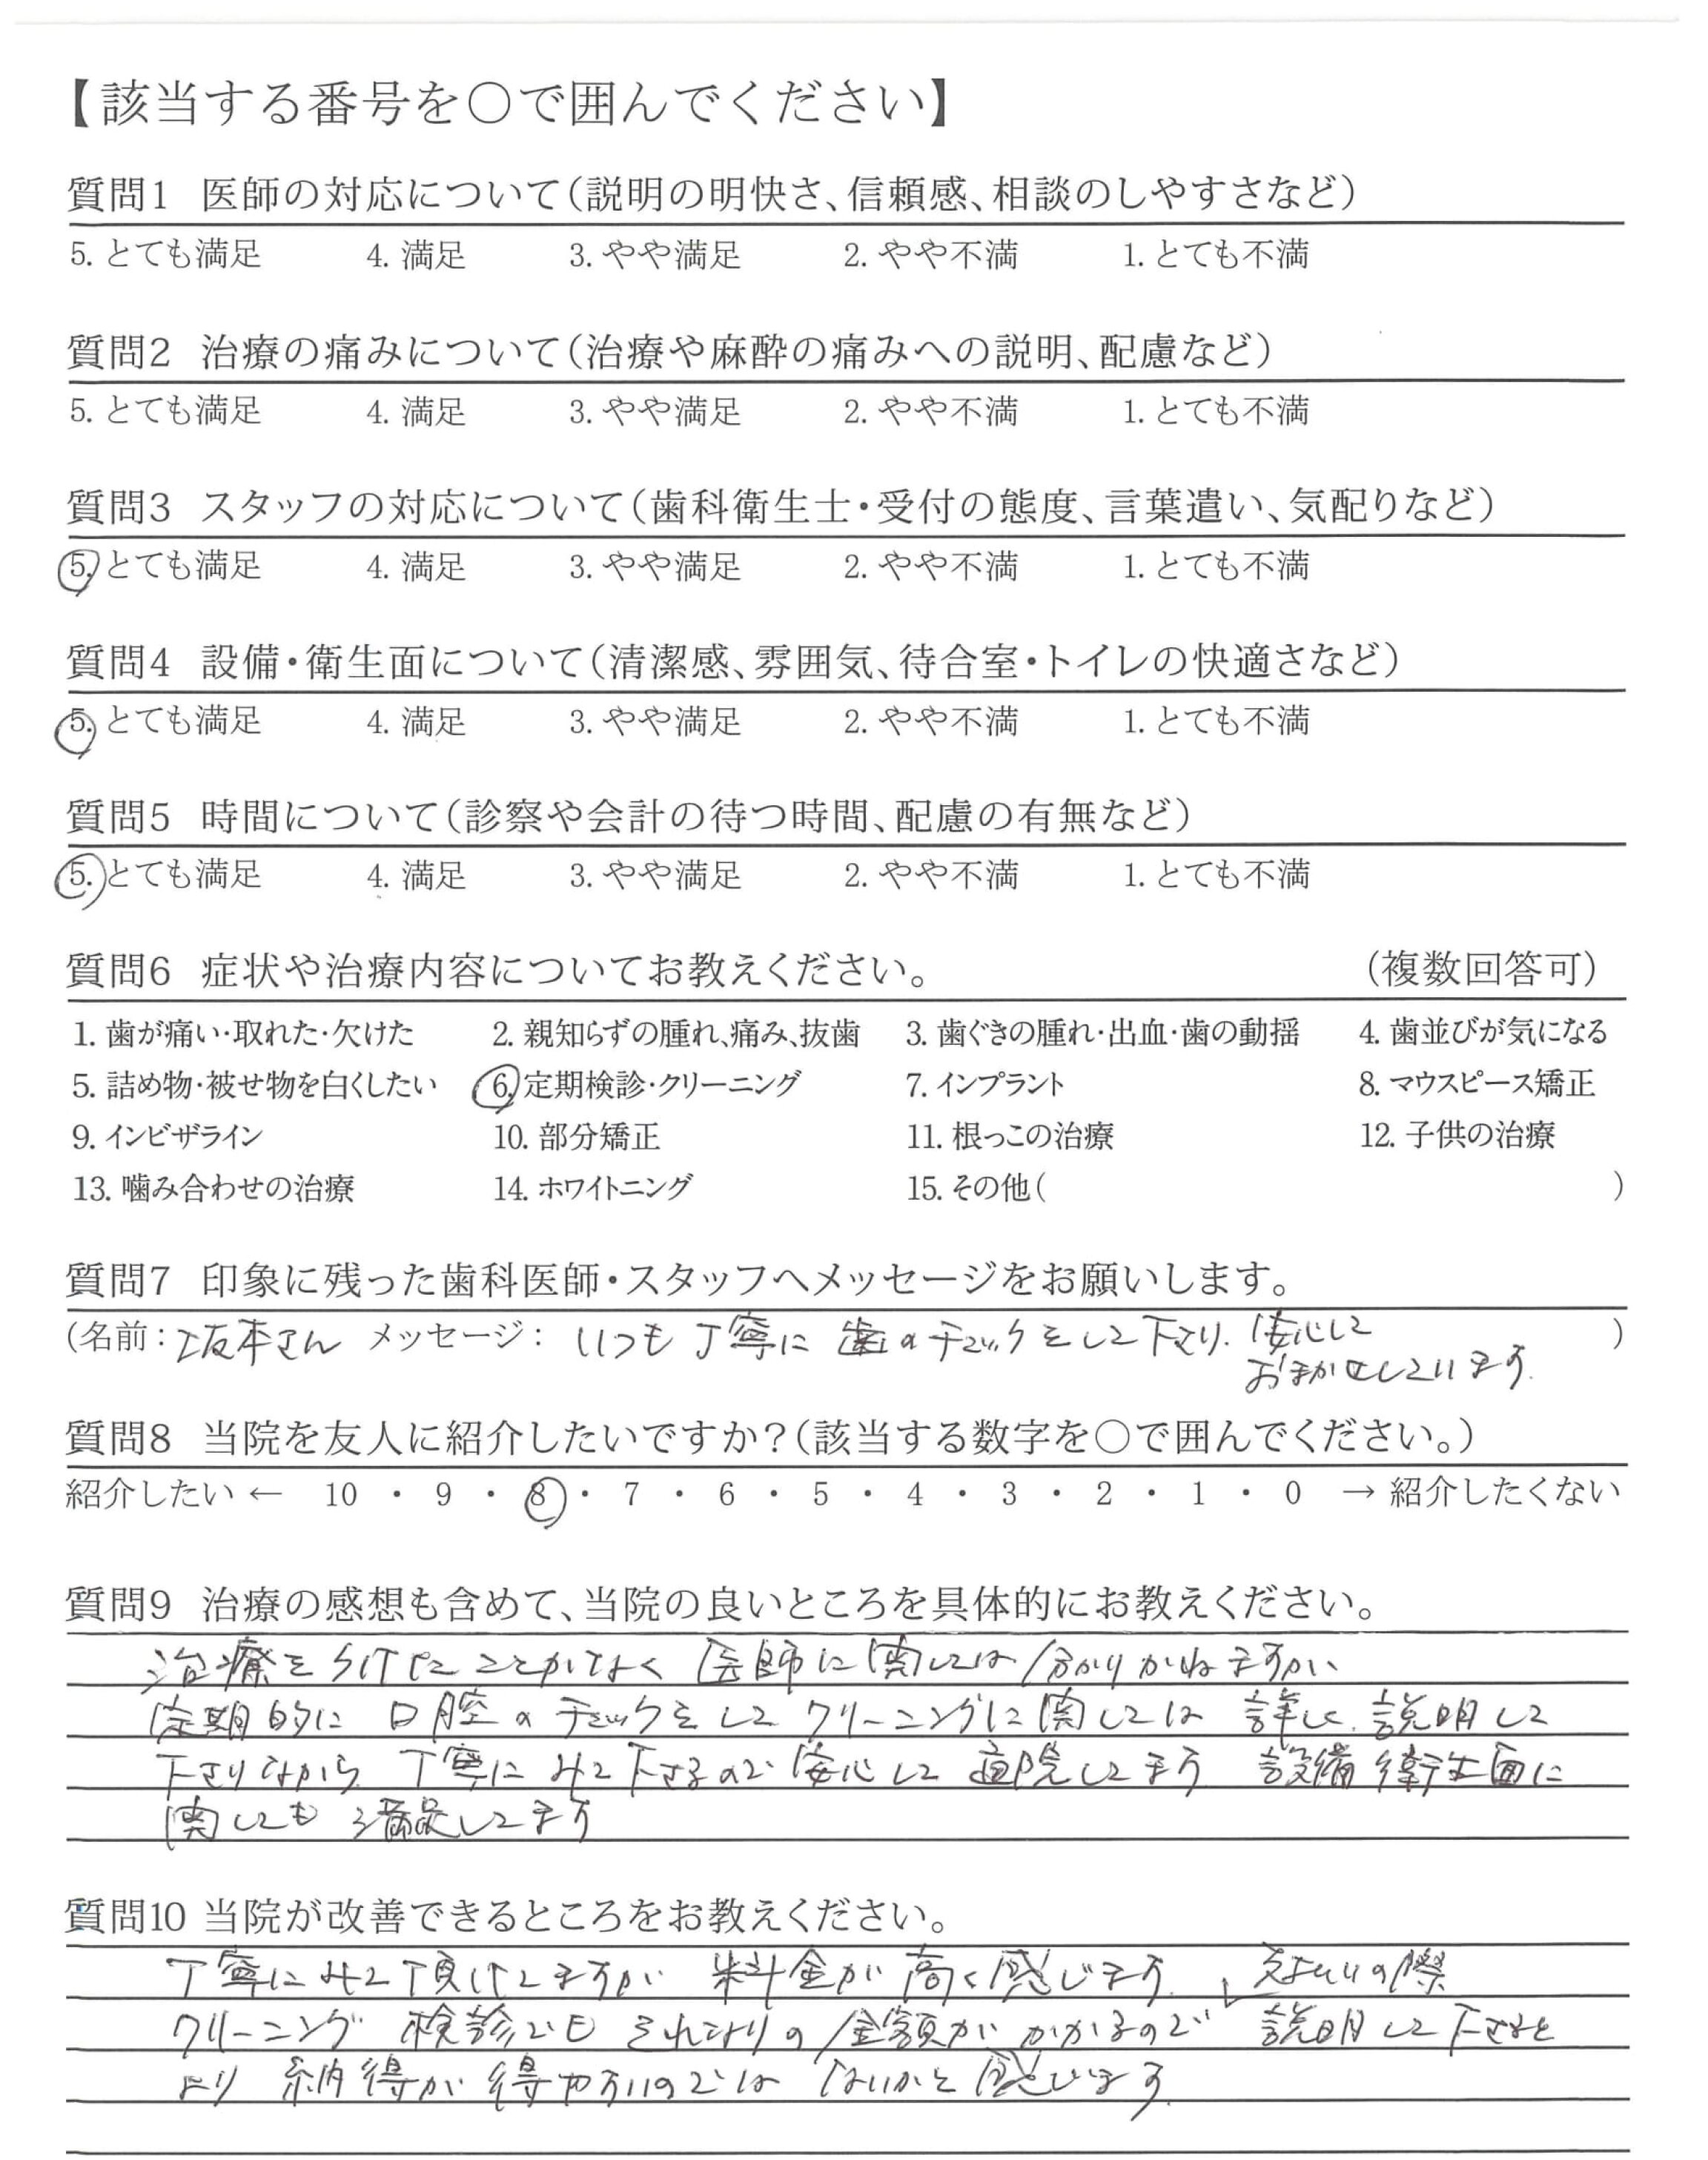 【該当する番号を〇で囲んでください】
質問1 医師の対応について(説明の明快さ、信頼感、相談のしやすさなど)
5. とても満足 4. 満足 3. やや満足 2. やや不満 1. とても不満
質問2 治療の痛みについて(治療や麻酔の痛みへの説明、配慮など)
5. とても満足 4. 満足 3. やや満足 2. やや不満 1. とても不満
質問3 スタッフの対応について(歯科衛生士・受付の態度、言葉遣い、気配りなど)
5. とても満足 4. 満足 3. やや満足 2. やや不満 1. とても不満
質問4 設備・衛生面について(清潔感、雰囲気、待合室・トイレの快適さなど)
5. とても満足 4. 満足 3. やや満足 2. やや不満 1. とても不満
質問5 時間について(診察や会計の待つ時間、配慮の有無など)
5. とても満足 4. 満足 3. やや満足 2. やや不満 1. とても不満
質問6 症状や治療内容についてお教えください。 (複数回答可)
1. 歯が痛い・取れた・欠けた 2. 親知らずの腫れ、痛み、抜歯 3. 歯ぐきの腫れ・出血・歯の動揺 4. 歯並びが気になる
5. 詰め物・被せ物を白くしたい 6. 定期検診・クリーニング 7. インプラント 8. マウスピース矯正
9. インビザライン 10. 部分矯正 11. 根っこの治療 12. 子供の治療
13. 噛み合わせの治療 14. ホワイトニング 15. その他( )
質問7 印象に残った歯科医師・スタッフへメッセージをお願いします。
(名前: 坂本さん メッセージ: いつも丁寧に歯のチェックをして下さり、安心して )
おまかせしています。
質問8 当院を友人に紹介したいですか?(該当する数字を〇で囲んでください。)
紹介したい ← 10 ・ 9 ・ 8 ・ 7 ・ 6 ・ 5 ・ 4 ・ 3 ・ 2 ・ 1 ・ 0 → 紹介したくない
質問9 治療の感想も含めて、当院の良いところを具体的にお教えください。
治療をうけたことがなく 医師に関しては分かりかねますが
定期的に 口腔のチェックをして クリーニングに関しては 詳しく説明して
下さりながら 丁寧に みて下さるので 安心して 通院してます 設備衛生面に
関しても 満足してます
質問10 当院が改善できるところをお教えください。
丁寧にみて頂けてますが 料金が高く感じます、支払いの際
クリーニング 検診でも それなりの金額が かかるので 説明して下さると
より 納得が得やすいのでは ないかと感じます。